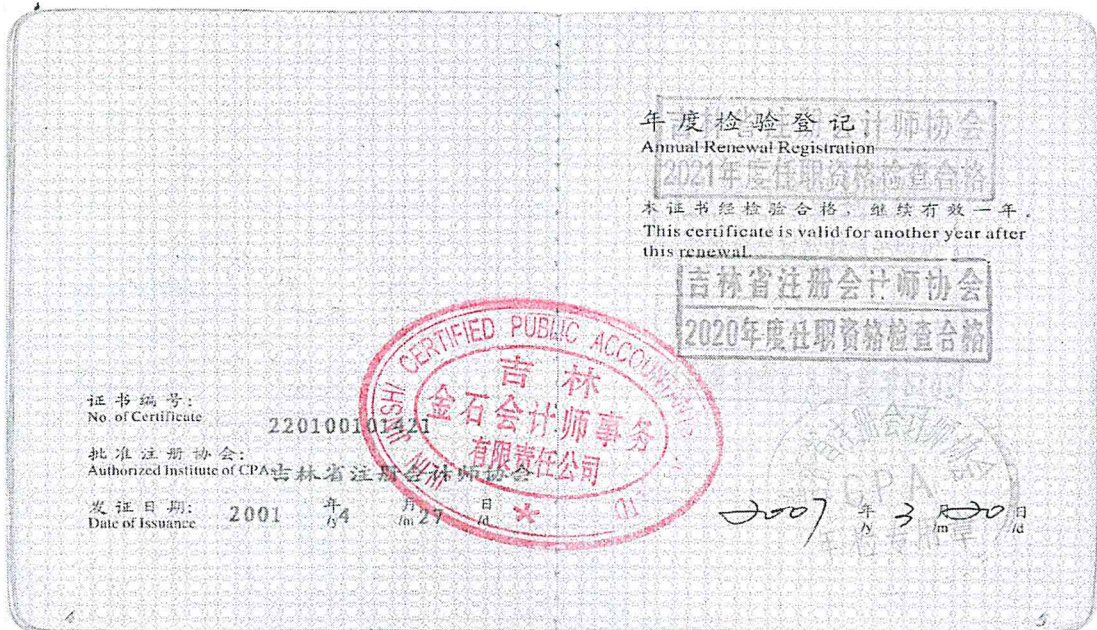 证书编号:
No. of Certificate
220100101421
批准注册协会:
Authorized Institute of CPAs
吉林省注册会计师协会
发证日期:
Date of Issuance
2001 年 /y 4 月 /m 27 日 /d
JILIN JINSHI CERTIFIED PUBLIC ACCOUNTANTS LTD
吉林
金石会计师事务
有限责任公司
4
年度检验登记
Annual Renewal Registration
吉林省注册会计师协会
2021年度任职资格检查合格
本证书经检验合格,继续有效一年。
This certificate is valid for another year after
this renewal.
吉林省注册会计师协会
2020年度任职资格检查合格
CPA
年检专用章
2007 年 /y 3 月 /m 20 日 /d
5